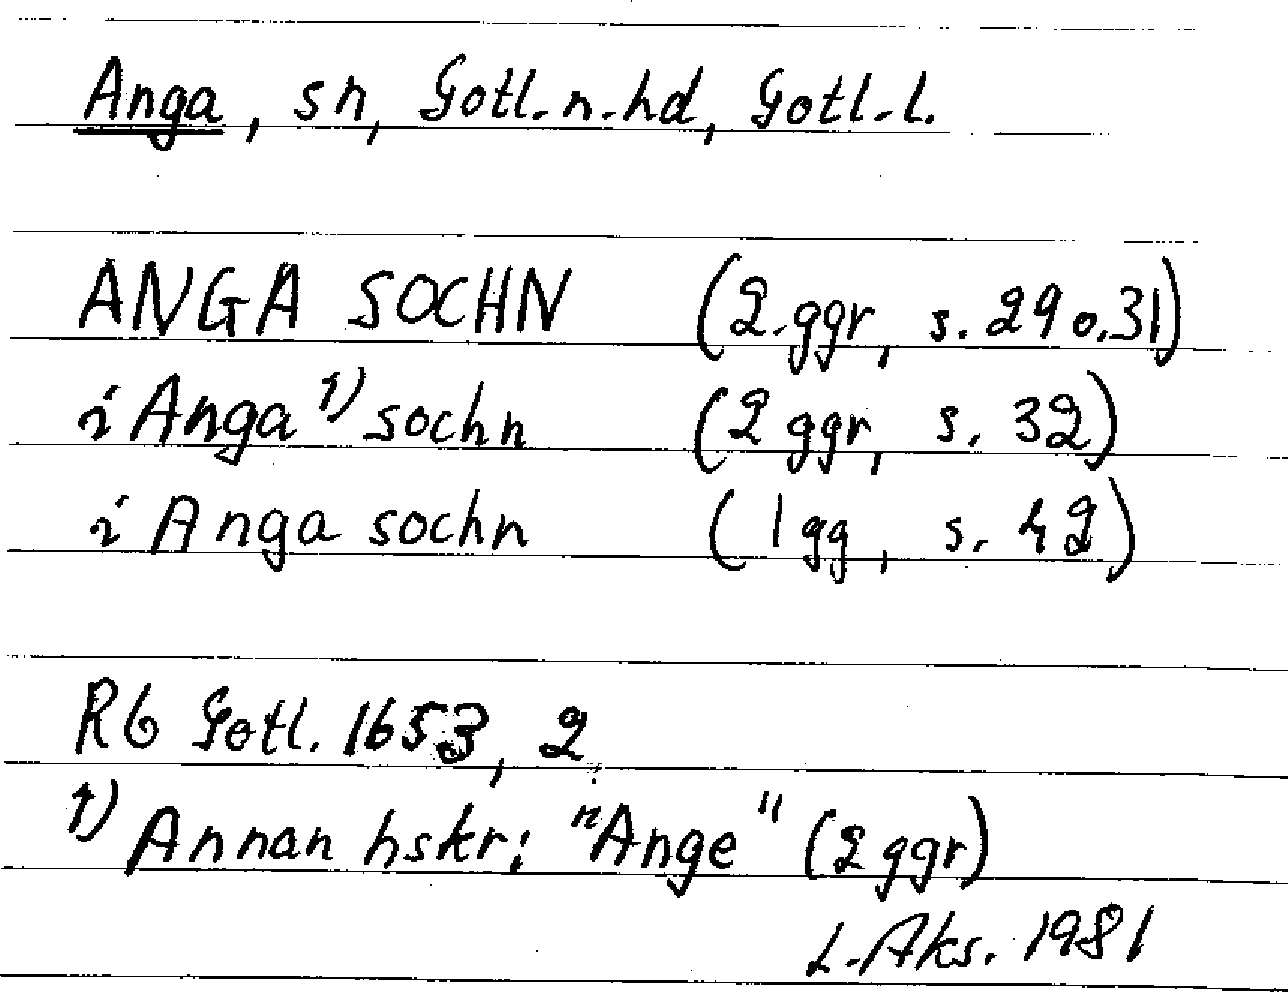 Anga, sn, Gotl. n. hd, Gotl. l.
ANGA SOCHN (2 ggr, s. 29 o. 31)
i Anga 1) sochn (2 ggr, s. 32)
i Anga sochn (1 gg, s. 42)
Rb Gotl. 1653, 2
1) Annan hskr: "Ange" (2 ggr)
L. Aks. 1981